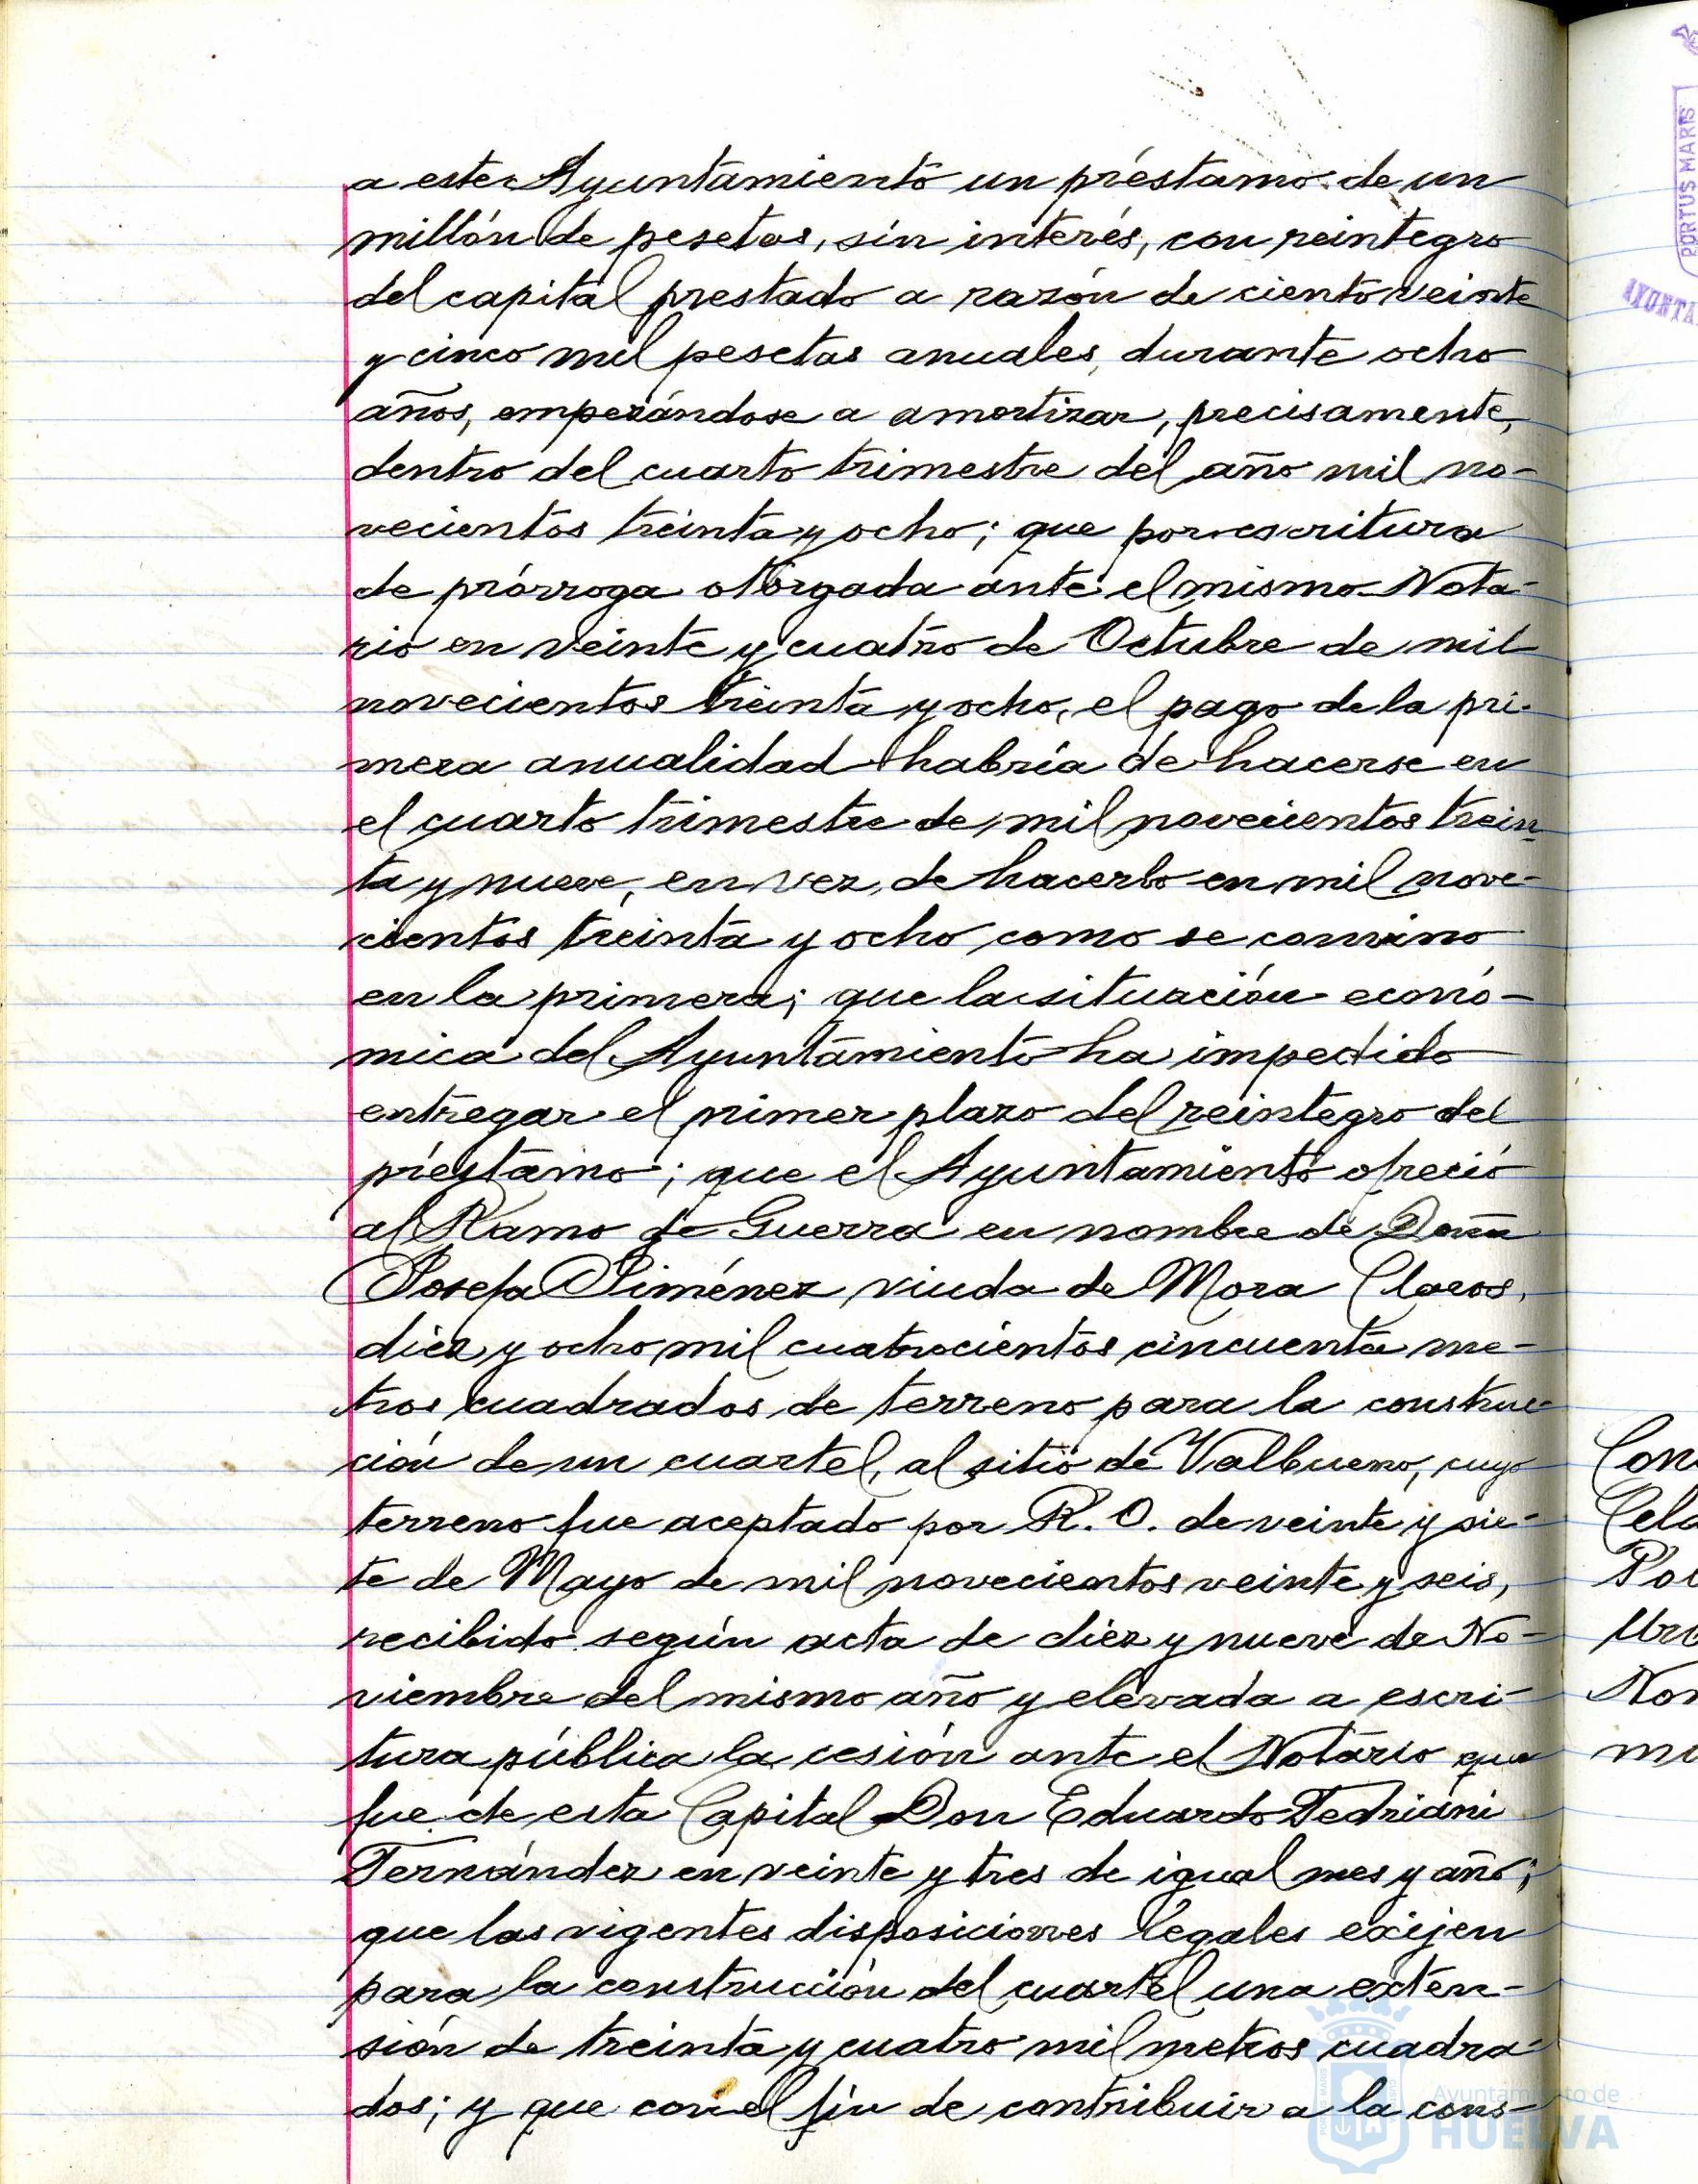 a este Ayuntamiento un préstamo de un
millón de pesetas, sin interés, con reintegro
del capital prestado a razón de ciento veinte
y cinco mil pesetas anuales, durante ocho
años, empezándose a amortizar, precisamente,
dentro del cuarto trimestre del año mil no-
vecientos treinta y ocho; que por escritura
de prórroga otorgada ante el mismo Nota-
rio en veinte y cuatro de Octubre de mil
novecientos treinta y ocho, el pago de la pri-
mera anualidad habría de hacerse en
el cuarto trimestre de mil novecientos trein
ta y nueve, en vez, de hacerlo en mil nove-
cientos treinta y ocho como se convino
en la primera; que la situación econó-
mica del Ayuntamiento ha impedido
entregar el primer plazo del reintegro del
préstamo; que el Ayuntamiento ofreció
al Ramo de Guerra en nombre de Doña
Josefa Jiménez viuda de Mora Claros,
diez y ocho mil cuatrocientos cincuenta me-
tros cuadrados de terreno para la construc-
ción de un cuartel, al sitio de Valbueno, cuyo
terreno fue aceptado por R. O. de veinte y sie-
te de Mayo de mil novecientos veinte y seis,
recibido según acta de diez y nueve de No-
viembre del mismo año y elevada a escri-
tura pública la cesión ante el Notario que
fue de esta Capital Don Eduardo Fedriáni
Fernández en veinte y tres de igual mes y año;
que las vigentes disposiciones legales exijen
para la construcción del cuartel una exten-
sión de treinta y cuatro mil metros cuadra-
dos; y que con el fin de contribuir a la cons-
PORTUS MARIS
AYUNTA
Con
Cela
Nor
Ayuntamiento de
HUELVA